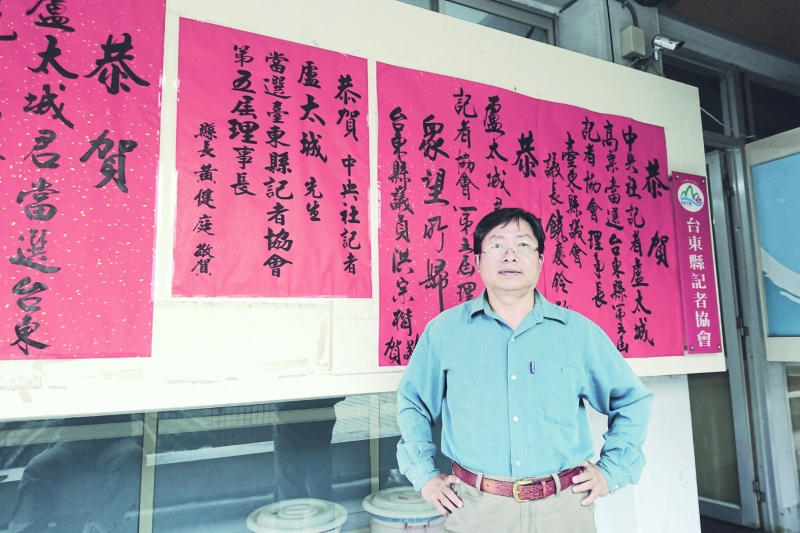 台東縣記者協會
恭賀
中央社記者盧太城
高票當選台東縣第五屆
記者協會理事長
臺東縣議會
議長饒慶鈴
恭
盧太城君
記者協會第五屆理
眾望所歸
台東縣議員洪宗楷敬賀
恭賀 中央社記者
盧太城 先生
當選臺東縣記者協會
第五屆理事長
縣長黃健庭 敬賀
恭賀
盧太城君當選台東